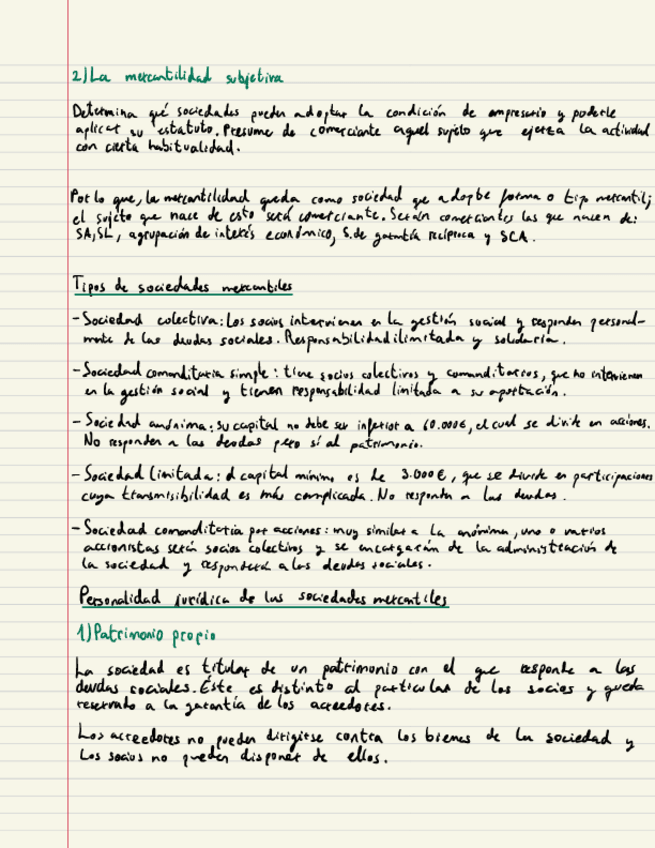 2) La mercantilidad subjetiva
Determina qué sociedades pueden adoptar la condición de empresario y poderle
aplicar su estatuto. Presume de comerciante aquel sujeto que ejerza la actividad
con cierta habitualidad.
Por lo que, la mercantilidad queda como sociedad que adopte forma o tipo mercantil;
el sujeto que nace de esto será comerciante. Serán comerciantes las que nacen de:
SA, SL, agrupación de interés económico, S. de garantía recíproca y SCA.
Tipos de sociedades mercantiles
- Sociedad colectiva: Los socios intervienen en la gestión social y responden personal-
mente de las deudas sociales. Responsabilidad ilimitada y solidaria.
- Sociedad comanditaria simple: tiene socios colectivos y comanditarios, que no intervienen
en la gestión social y tienen responsabilidad limitada a su aportación.
- Sociedad anónima: su capital no debe ser inferior a 60.000€, el cual se divide en acciones.
No responden a las deudas pero sí al patrimonio.
- Sociedad limitada: el capital mínimo es de 3.000€, que se divide en participaciones
cuya transmisibilidad es más complicada. No responden a las deudas.
- Sociedad comanditaria por acciones: muy similar a la anónima, uno o varios
accionistas serán socios colectivos y se encargarán de la administración de
la sociedad y responderá a las deudas sociales.
Personalidad jurídica de las sociedades mercantiles
1) Patrimonio propio
La sociedad es titular de un patrimonio con el que responde a las
deudas sociales. Éste es distinto al particular de los socios y queda
reservado a la garantía de los acreedores.
Los acreedores no pueden dirigirse contra los bienes de la sociedad y
los socios no pueden disponer de ellos.